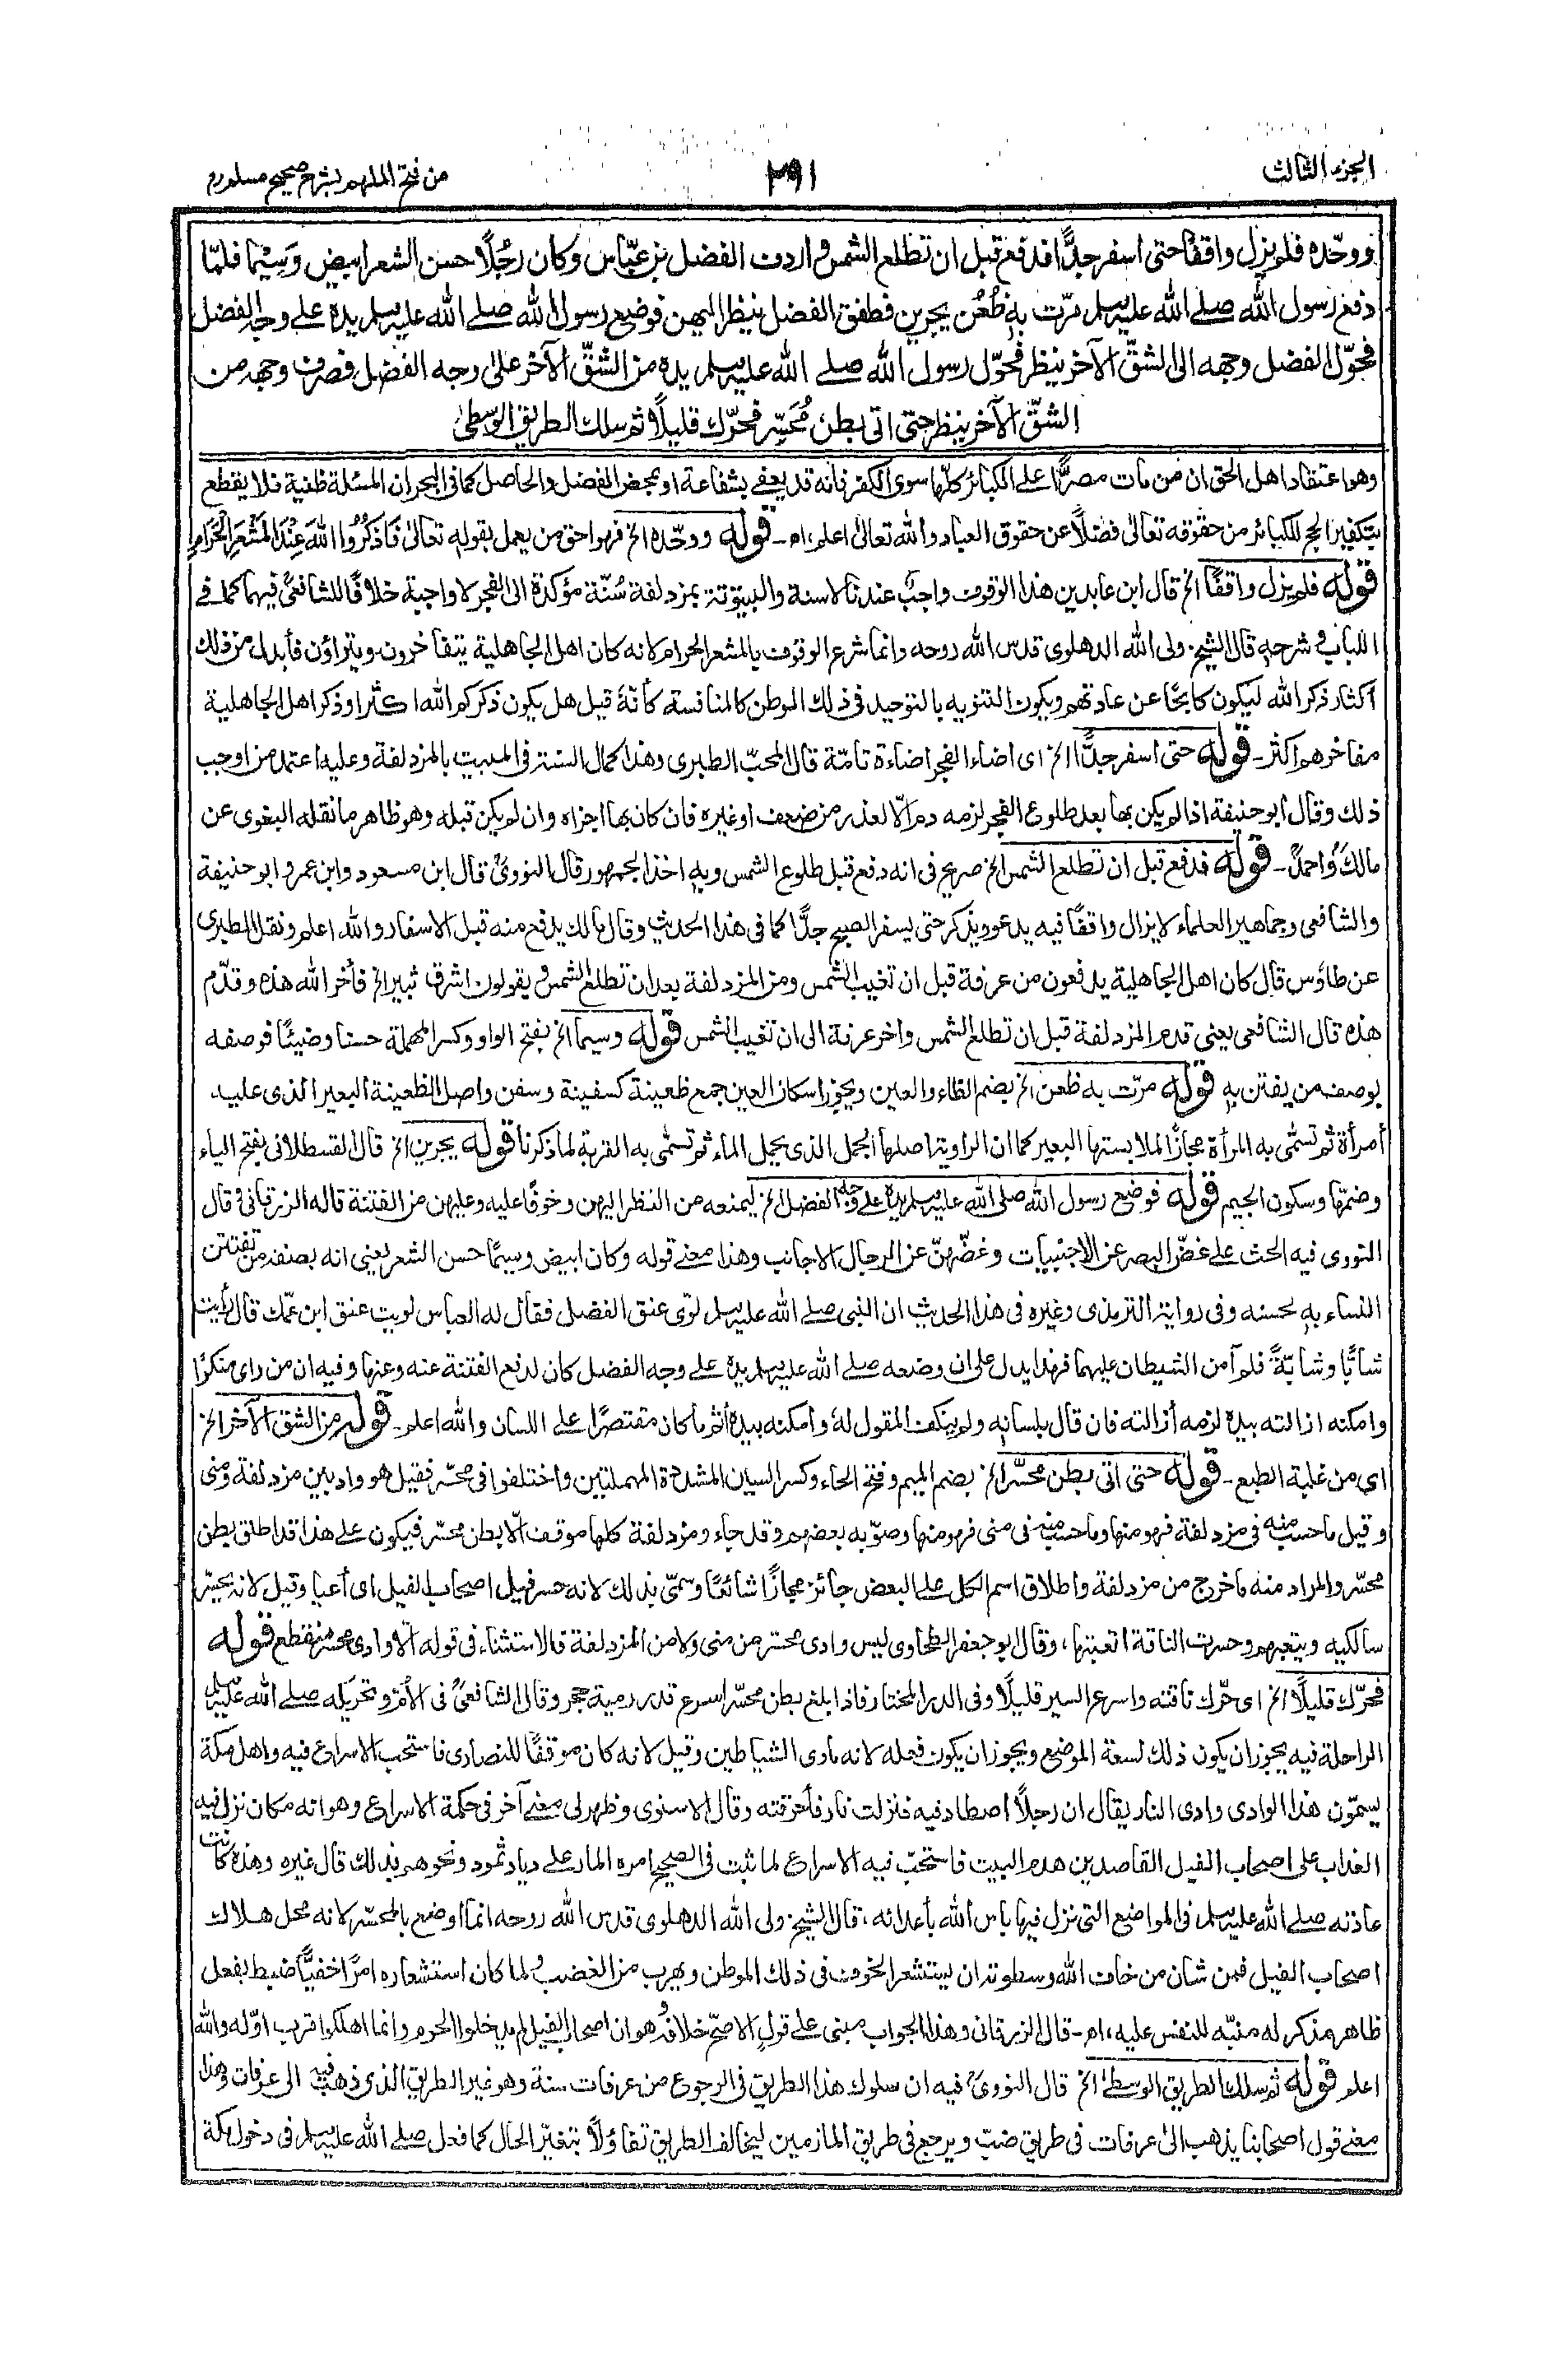 الجزء الثالث
٢٩١
من فتح الملهم بشرح صحيح مسلم
ووحّده فلم يزل واقفًا حتى اسفر جدًّا فدفع قبل ان تطلع الشمس واردف الفضل بن عبّاس وكان رجُلًا حسن الشعر ابيض وَسِيْمًا فلمّا
دفع رسول الله صلے الله عليه وسلم مرّت به ظُعُن يجرين فطفق الفضل ينظر اليهن فوضع رسول الله صلے الله عليه وسلم يده علے وجه الفضل
فحوّل الفضل وجهه الى الشقّ الآخر ينظر فحوّل رسول الله صلے الله عليه وسلم يده من الشقّ الآخر على وجه الفضل فصرف وجهه من
الشقّ الآخر ينظر حتى اتى بطن مُحَسِّر فحرّك قليلًا ثم سلك الطريق الوسطى
وهو اعتقاد اهل الحق ان من مات مصرًّا على الكبائر كلّها سوى الكفر فانه قد يعفى بشفاعة او بمحض الفضل والحاصل كما فى البحر ان المسئلة ظنية فلا يقطع
بتكفير الحج للكبائر من حقوقه تعالى فضلًا عن حقوق العباد والله تعالى اعلم، اه ـ قوله ووحّده الخ فهو احق من يعمل بقوله تعالى فَاذْكُرُوا اللهَ عِنْدَ الْمَشْعَرِ الْحَرَامِ
قوله فلم يزل واقفًا الخ قال ابن عابدين هذا الوقوف واجبٌ عندنا لا سنة والبيتوتة بمزدلفة سُنّة مؤكدة الى الفجر لا واجبة خلافًا للشافعىؒ فيهما كما فے
اللباب وشرحه قال الشيخ ولى الله الدهلوى قدس الله روحه وانما شرع الوقوف بالمشعر الحرام لانه كان اهل الجاهلية يتفاخرون ويتراؤن فأبدل من ذلك
اكثار ذكر الله ليكون كابحًا عن عادتهم ويكون التنويه بالتوحيد فى ذلك الموطن كالمنافسة كأنّهٗ قيل هل يكون ذكركم الله اكثر او ذكر اهل الجاهلية
مفاخرهم اكثر ـ قوله حتى اسفر جدًّا الخ اى اضاء الفجر اضاءة تامّة قال المحبّ الطبرى وهذا كمال السنة فى المبيت بالمزدلفة وعليه اعتمد من اوجب
ذلك وقال ابو حنيفة اذا لم يكن بها بعد طلوع الفجر لزمه دم الّا لعذر من ضعف او غيره فان كان بها اجزاه وان لم يكن قبله وهو ظاهر ما نقله البغوى عن
مالكؒ واحمدؒ ـ قوله فدفع قبل ان تطلع الشمس الخ صريح فى انه دفع قبل طلوع الشمس وبه اخذ الجمهور قال النووىؒ قال ابن مسعود وابن عمر وابو حنيفة
والشافعى وجماهير العلماء لا يزال واقفًا فيه يدعو ويذكر حتى يسفر الصبح جدًّا كما فى هذا الحديث وقال مالك يدفع منه قبل الاسفار والله اعلم ونقل الطبرى
عن طاؤس قال كان اهل الجاهلية يدفعون من عرفة قبل ان تغيب الشمس ومن المزدلفة بعد ان تطلع الشمس ويقولون اشرق ثبير الخ فأخر الله هذه وقدّم
هذه قال الشافعى يعنى قدم المزدلفة قبل ان تطلع الشمس واخر عرفة الى ان تغيب الشمس قوله وسيما الخ بفتح الواو وكسر المهملة حسنا وضيئًا فوصفه
بوصف من يفتن به قوله مرّت به ظعن الخ بضم الظاء والعين ويجوز اسكان العين جمع ظعينة كسفينة وسفن واصل الظعينة البعير الذى عليه
أمرأة ثم تسمّى به المرأة مجازًا لملابستها البعير كما ان الراوية اصلها الجمل الذى يحمل الماء ثم تسمّى به القربة لما ذكرنا قوله يجرين الخ قال القسطلانى بفتح الياء
وضمّها وسكون الجيم قوله فوضع رسول الله صلى الله عليه وسلم يده على وجه الفضل الخ ليمنعه من النظر اليهن وخوفًا عليه وعليهن من الفتنة قاله الزرقانى وقال
النووى فيه الحث على غضّ البصر عن الاجنبيات وغضّهنّ عن الرجال الاجانب وهذا معنے قوله وكان ابيض وسيمًا حسن الشعر يعنى انه بصفة من تفتتن
النساء به لحسنه وفى رواية الترمذى وغيره فى هذا الحديث ان النبى صلے الله عليه وسلم لوّى عنق الفضل فقال له العباس لويت عنق ابن عمّك قال رأيت
شابًّا وشابّةً فلم آمن الشيطان عليهما فهذا يدل على ان وضعه صلے الله عليه وسلم يده علے وجه الفضل كان لدفع الفتنة عنه وعنها وفيه ان من راى منكرًا
وامكنه ازالته بيده لزمه أزالته فان قال بلسانه ولم ينكف المقول لهٗ وامكنه بيده أثم ما كان مقتصرًا علے اللسان والله اعلم ـ قوله من الشق الآخر الخ
اى من غلبة الطبع ـ قوله حتى اتى بطن محسّر الخ بضم الميم وفتح الحاء وكسر السين المشددة المهملتين واختلفوا فى محسّر فقيل هو واد بين مزدلفة ومنى
وقيل ما حسب منه فى مزدلفة فهو منها وما حسب منه فى منى فهو منها وصوّبه بعضهم وقد جاء ومزدلفة كلها موقف الّا بطن محسّر فيكون علے هذا قد اطلق بطن
محسّر والمراد منه ما خرج من مزدلفة واطلاق اسم الكل على البعض جائز مجازًا شائعًا وسمّى بذلك لانه حسر فيل اصحاب الفيل اى أعيا وقيل لانه يحسّر
سالكيه ويتعبهم وحسرت الناقة اتعبتها، وقال ابو جعفر الطحاوى ليس وادى محسّر من منى ولا من المزدلفة فالاستثناء فى قوله الّا وادى محسر منقطع قوله
فحرّك قليلًا الخ اى حرّك ناقته واسرع السير قليلًا وفى الدر المختار فاذا بلغ بطن محسّر اسرع قدر رمية حجر وقال الشافعىؒ فى الأمّ وتحريكه صلے الله عليه وسلم
الراحلة فيه يجوز ان يكون ذلك لسعة الموضع ويجوز ان يكون فعله لانه مأوى الشياطين وقيل لانه كان موقفًا للنصارى فاستحب الاسراع فيه واهل مكة
يسمّون هذا الوادى وادى النار يقال ان رجلًا اصطاد فيه فنزلت نار فأحرقته وقال الاسنوى وظهر لى معنے آخر فى حكمة الاسراع وهو انه مكان نزل فيه
العذاب على اصحاب الفيل القاصدين هدم البيت فاستحبّ فيه الاسراع لما ثبت فى الصحيح امره المار علے ديار ثمود ونحوهم بذلك قال غيره وهذه كانت
عادته صلے الله عليه وسلم فى المواضع التى نزل فيها بأس الله بأعدائه، قال الشيخ ولى الله الدهلوى قدس الله روحه انما اوضع بالمحسّر لانه محل هلاك
اصحاب الفيل فمن شان من خاف الله وسطوته ان يستشعر الخوف فى ذلك الموطن ويهرب من الغضب ولما كان استشعاره امرًا خفيًّا ضبط بفعل
ظاهر مذكر له منبّه للنفس عليه، اه ـ قال الزرقانى وهذا الجواب مبنى علے قول الاصحّ خلافه وهو ان اصحاب الفيل لم يدخلوا الحرم وانما اهلكوا قرب اوّله والله
اعلم قوله ثم سلك الطريق الوسطى الخ قال النووىؒ فيه ان سلوك هذا الطريق فى الرجوع من عرفات سنة وهو غير الطريق الذى ذهب فيه الى عرفات وهذا
معنے قول اصحابنا يذهب الى عرفات فى طريق ضبّ ويرجع فى طريق المازمين ليخالف الطريق تفاؤلًا بتغيّر الحال كما فعل صلے الله عليه وسلم فى دخول مكة